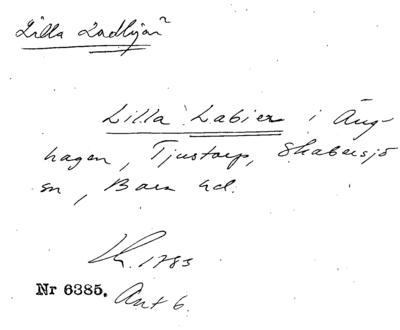 Lilla Ladhyan
Lilla Labier i Äng-
hagen, Tjustorp, Skabersjö
sn, Bara hd.
Lk. 1785
Nr 6385. Ant 6.